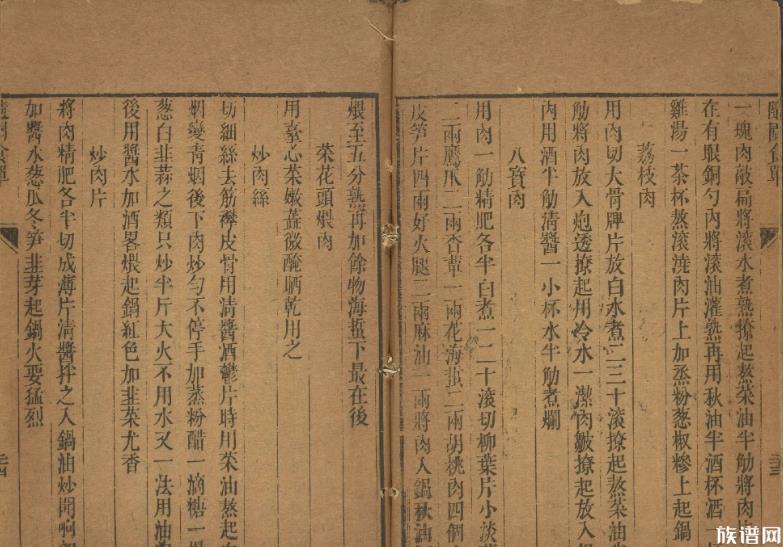 一塊肉敲扁將滾水煮熟撩起熬菜油半觔將肉
在有眼銅勺內將滾油灌熟再用秋油半酒杯酒一
雞湯一茶杯熬滾澆肉片上加蒸粉葱椒糝上起鍋
荔枝肉
用肉切大骨牌片放白水煮二三十滾撩起熬菜油
觔將肉放入炮透撩起用冷水一激肉皺撩起放入
內用酒半觔清醬一小杯水半觔煮爛
八寶肉
用肉一觔精肥各半白煮一二十滾切柳葉片小淡
二兩鷹爪二兩香蕈一兩花海蜇二兩胡桃肉四個
皮笋片四兩好火腿二兩麻油一兩將肉入鍋秋油
煨至五分熟再加餘物海蜇下最在後
菜花頭煨肉
用臺心菜嫩蕊微醃晒乾用之
炒肉絲
切細絲去筋襻皮骨用清醬酒鬱片時用菜油熬起
烟變青烟後下肉炒勻不停手加蒸粉醋一滴糖一
葱白韭蒜之類只炒半斤大火不用水又一法用油
後用醬水加酒畧煨起鍋紅色加韭菜尤香
炒肉片
將肉精肥各半切成薄片清醬拌之入鍋油炒聞响
加醬水葱瓜冬笋韭芽起鍋火要猛烈
族谱网